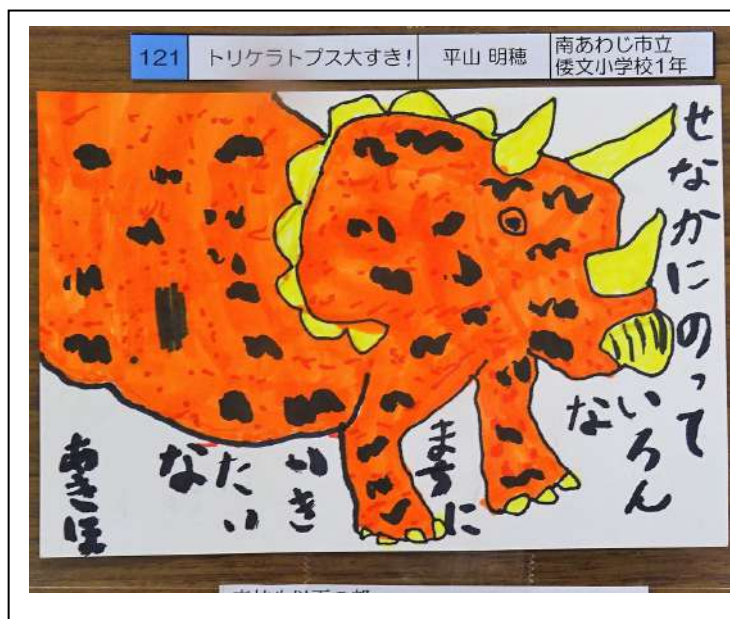 121
トリケラトプス大すき!
平山 明穂
南あわじ市立
倭文小学校1年
せなかにのって
いろん
な
まちに
いき
たい
な
あきほ